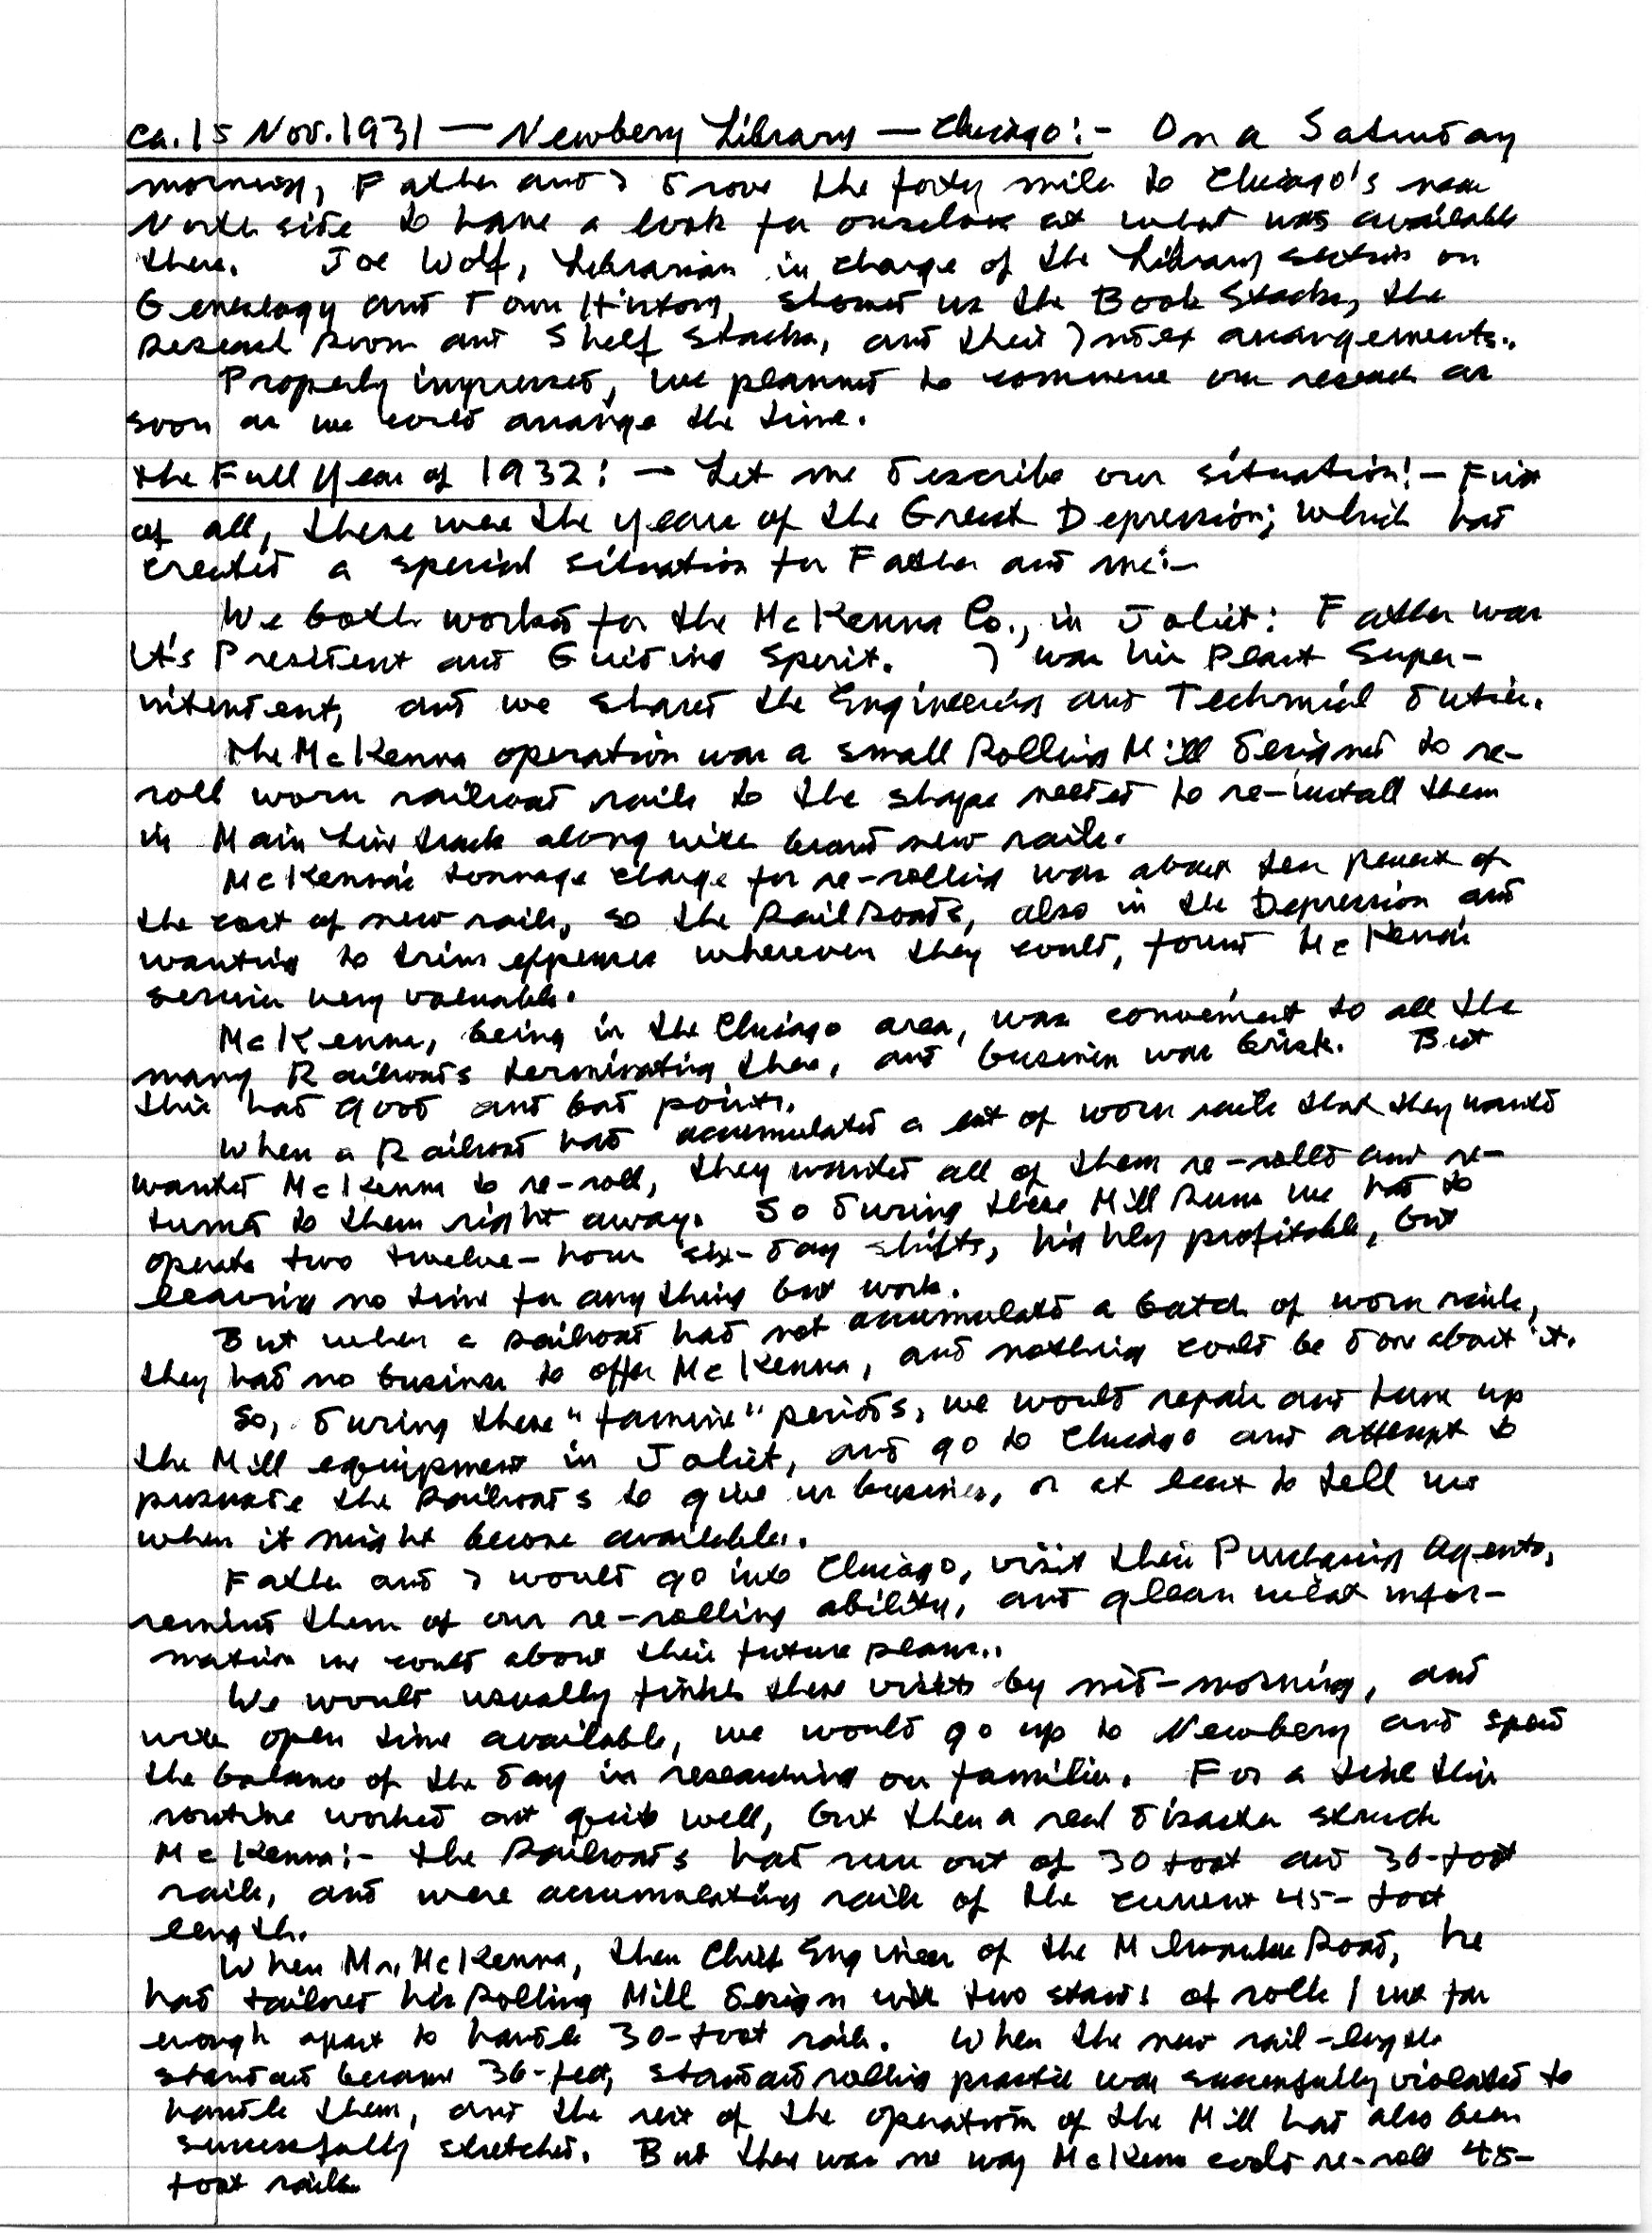 ca. 15 Nov. 1931 — Newbery Library — Chicago:- On a Saturday
morning, Father and I drove the forty miles to Chicago's near
North side to have a look for ourselves at what was available
there. Joe Wolf, Librarian in charge of the Library section on
Genealogy and Town History, showed us the Book Stacks, the
Research Room and Shelf Stacks, and their Index arrangements.
Properly impressed, we planned to commence our research as
soon as we could arrange the time.
The Full Year of 1932: — Let me describe our situation:- First
of all, these were the years of the Great Depression; which had
created a special situation for Father and me:-
We both worked for the McKenna Co., in Joliet: Father was
it's President and Guiding Spirit. I was his Plant Super-
intendent, and we shared the Engineering and Technical duties.
The McKenna operation was a small Rolling Mill designed to re-
roll worn railroad rails to the shape needed to re-install them
in Main Line track along with brand new rails.
McKenna's tonnage charge for re-rolling was about ten percent of
the cost of new rails, so the RailRoads, also in the Depression and
wanting to trim expenses wherever they could, found McKenna's
service very valuable.
McKenna, being in the Chicago area, was convenient to all the
many Railroads terminating there, and business was brisk. But
this had good and bad points.
When a Railroad had accumulated a lot of worn rails that they wanted
wanted McKenna to re-roll, they wanted all of them re-rolled and re-
turned to them right away. So during these Mill Runs we had to
operate two twelve-hour six-day shifts, highly profitable, but
leaving no time for anything but work.
But when a railroad had not accumulated a batch of worn rails,
they had no business to offer McKenna, and nothing could be done about it.
So, during these "famine" periods, we would repair and tune up
the Mill equipment in Joliet, and go to Chicago and attempt to
persuade the Railroads to give us business, or at least to tell us
when it might become available.
Father and I would go into Chicago, visit their Purchasing Agents,
remind them of our re-rolling ability, and glean what infor-
mation we could about their future plans.
We would usually finish these visits by mid-morning, and
with open time available, we would go up to Newbery and spend
the balance of the day in researching our families. For a time this
routine worked out quite well, but then a real disaster struck
McKenna:- the Railroads had run out of 30 foot and 36-foot
rails, and were accumulating rails of the current 45-foot
length.
When Mr. McKenna, then Chief Engineer of the Milwaukee Road, he
had tailored his Rolling Mill design with two stands of rolls just far
enough apart to handle 30-foot rails. When the new rail-length
standard became 36-feet, standard rolling practice was successfully violated to
handle them, and the rest of the operation of the Mill had also been
successfully stretched. But there was no way McKenna could re-roll 45-
foot rails.